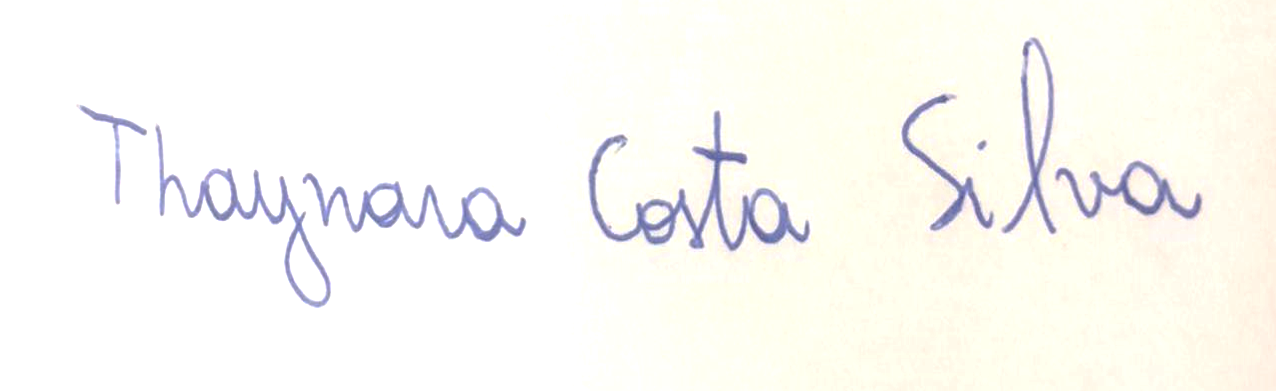 Thaynara Costa Silva